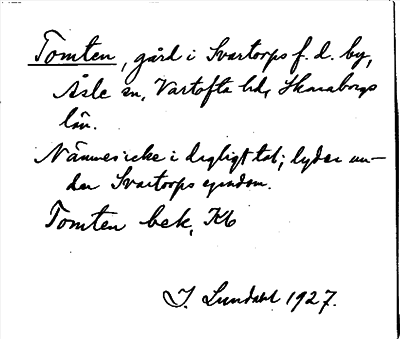 Tomten, gård i Svartorps f. d. by,
Åsle sn, Vartofta hd, Skaraborgs
län.
Nämnes icke i dagligt tal; lyder un-
der Svartorps egendom.
Tomten bek, Kb
I. Lundahl 1927.